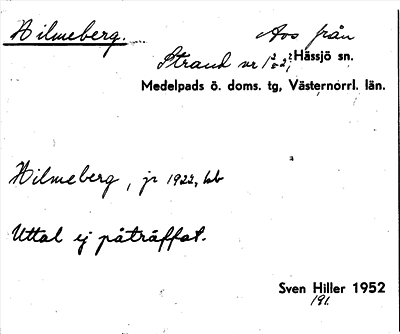 Hilmeberg.
Avs från
Strand nr 1²⁄₈-2², Hässjö sn.
Medelpads ö. doms. tg, Västernorrl. län.
Hilmeberg, jr 1922, lb
Uttal ej påträffat.
Sven Hiller 1952
191.